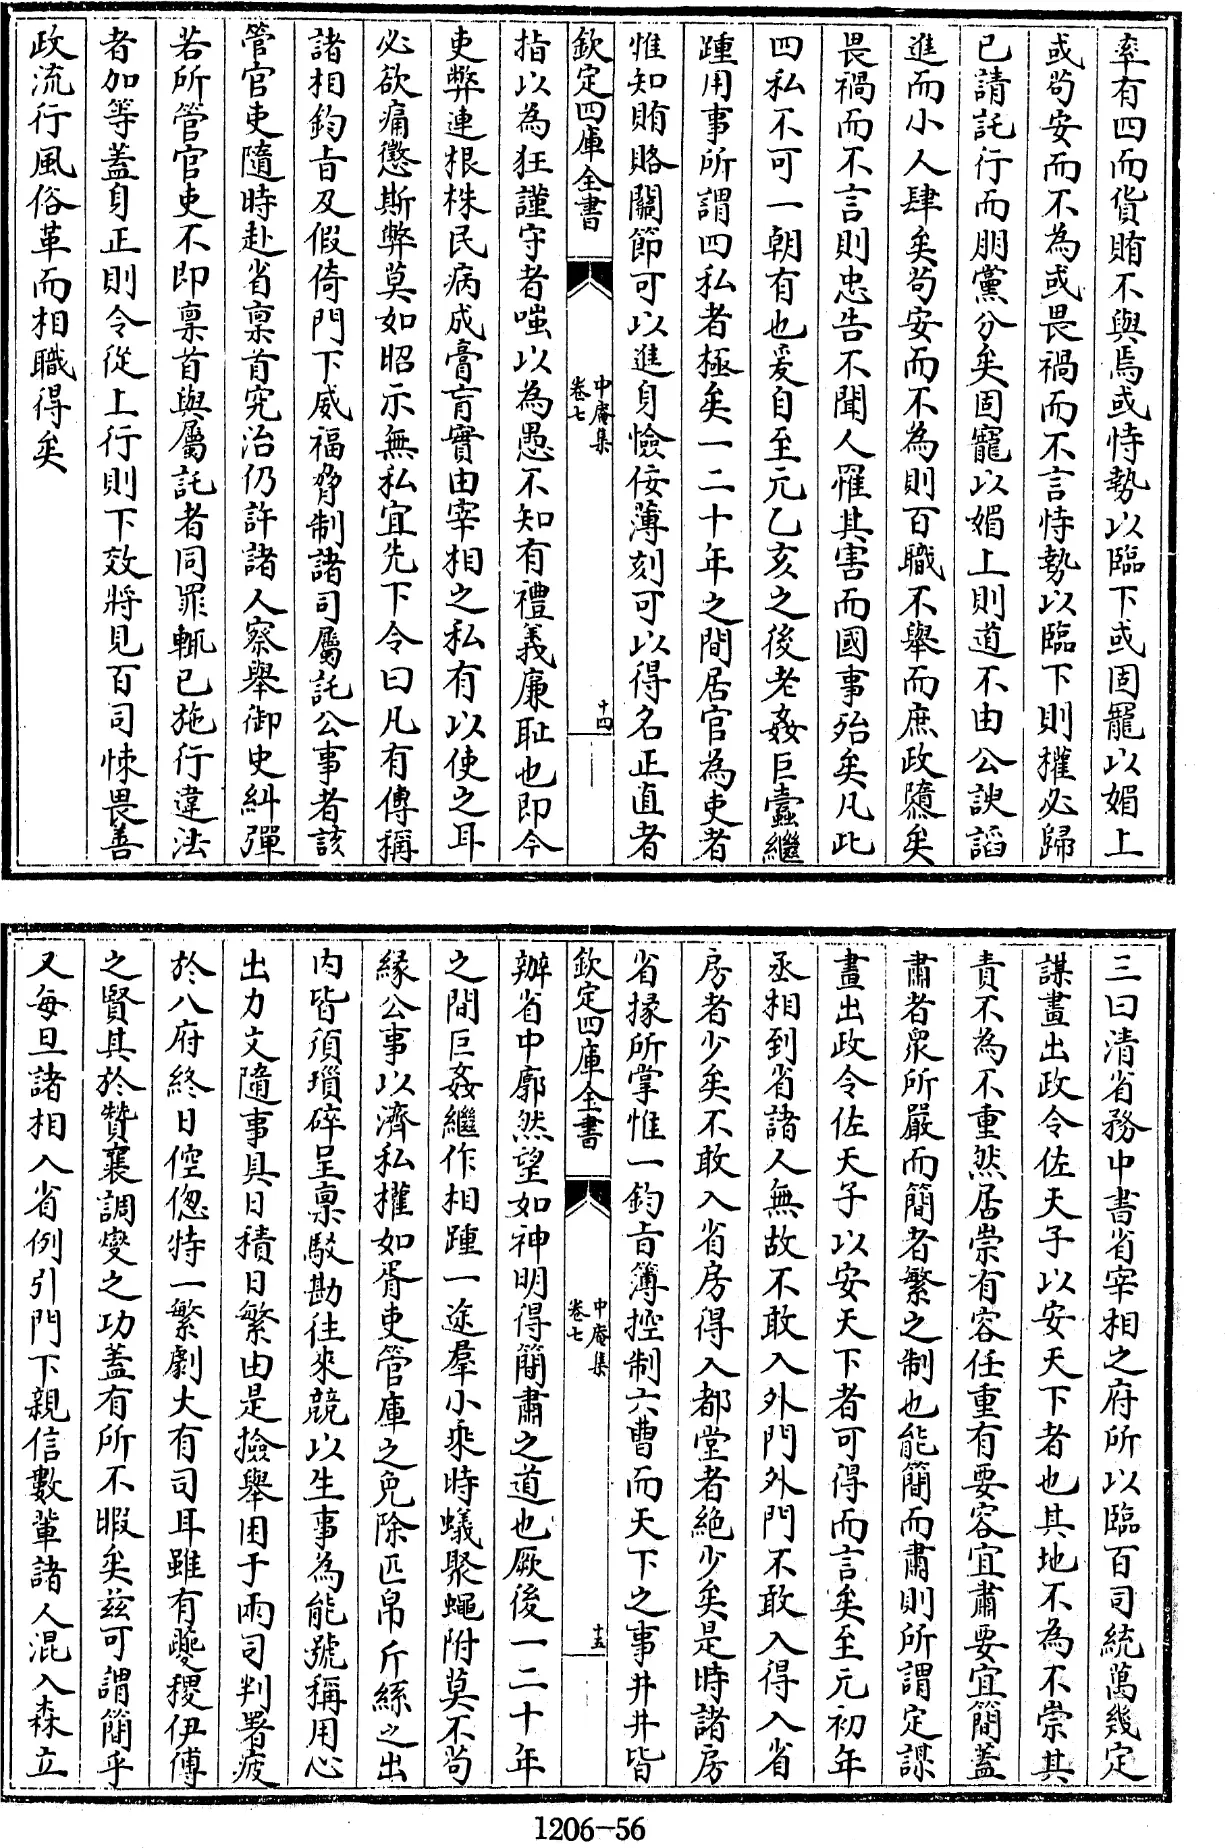 率有四而貨賄不與焉或恃勢以臨下或固寵以媚上
或茍安而不為或畏禍而不言恃勢以臨下則權必歸
已請託行而朋黨分矣固寵以媚上則道不由公諛諂
進而小人肆矣茍安而不為則百職不舉而庶政隳矣
畏禍而不言則忠告不聞人罹其害而國事殆矣凡此
四私不可一朝有也爰自至元乙亥之後老姦巨蠧繼
踵用事所謂四私者極矣一二十年之間居官為吏者
惟知賄賂關節可以進身憸佞薄刻可以得名正直者
欽定四庫全書
中庵集
卷七
十四
指以為狂謹守者嗤以為愚不知有禮義廉恥也即今
吏弊連根株民病成膏肓實由宰相之私有以使之耳
必欲痛懲斯弊莫如昭示無私宜先下令曰凡有傳稱
諸相鈞旨及假倚門下威福脅制諸司屬託公事者該
管官吏隨時赴省禀首究治仍許諸人察舉御史糾彈
若所管官吏不即禀首與屬託者同罪輒已施行違法
者加等蓋身正則令從上行則下效將見百司悚畏善
政流行風俗革而相職得矣
三曰清省務中書省宰相之府所以臨百司統萬幾定
謀畫出政令佐天子以安天下者也其地不為不崇其
責不為不重然居崇有容任重有要容宜肅要宜簡蓋
肅者衆所嚴而簡者繁之制也能簡而肅則所謂定謀
畫出政令佐天子以安天下者可得而言矣至元初年
丞相到省諸人無故不敢入外門外門不敢入得入省
房者少矣不敢入省房得入都堂者絶少矣是時諸房
省掾所掌惟一鈞旨簿控制六曹而天下之事井井皆
欽定四庫全書
中庵集
卷七
十五
辦省中廓然望如神明得簡肅之道也厥後一二十年
之間巨姦繼作相踵一途羣小乘時蟻聚蠅附莫不茍
緣公事以濟私權如胥吏管庫之免除匹帛斤絲之出
内皆須瑣碎呈禀駁勘往來競以生事為能號稱用心
出力文隨事具日積日繁由是撿舉困于兩司判署疲
於八府終日倥傯特一繁劇大有司耳雖有夔稷伊傅
之賢其於贊襄調燮之功蓋有所不暇矣兹可謂簡乎
又每旦諸相入省例引門下親信數輩諸人混入森立
1206-56